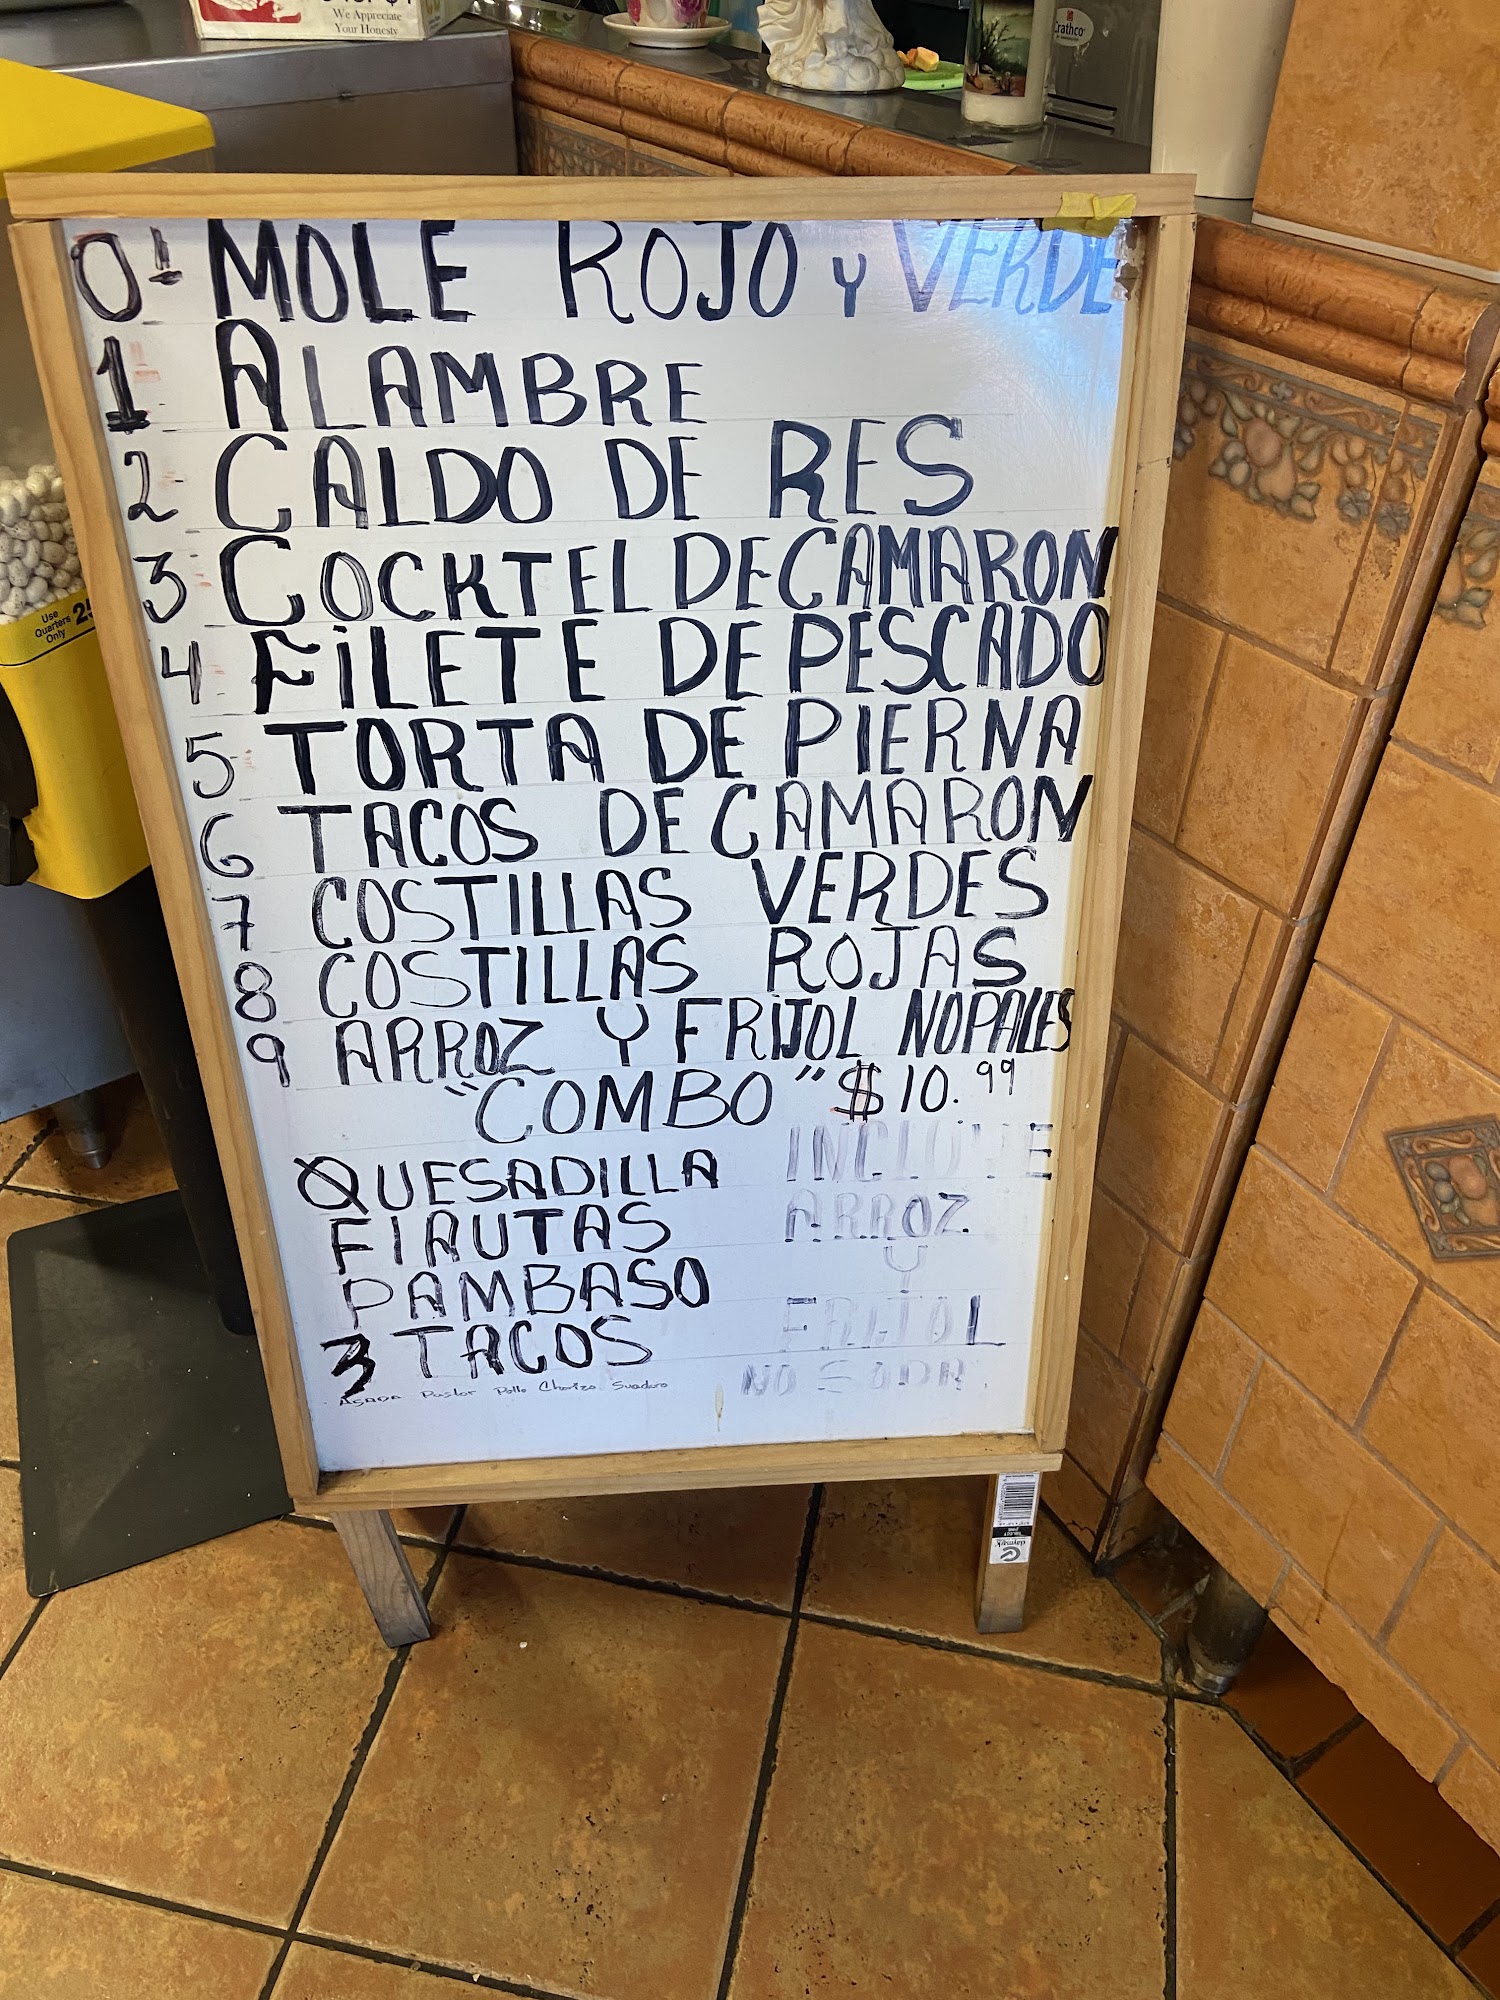 We Appreciate
Your Honesty
rathco
Use
Quarters
Only
0- MOLE ROJO Y VERDE
1- ALAMBRE
2- CALDO DE RES
3- COCKTEL DE CAMARON
4- FILETE DE PESCADO
5- TORTA DE PIERNA
6 TACOS DE CAMARON
7 COSTILLAS VERDES
8 COSTILLAS ROJAS
9 ARROZ Y FRIJOL NOPALES
"COMBO" $10.99
QUESADILLA INCLUYE
FLAUTAS ARROZ
Y
PAMBASO
FRIJOL
3 TACOS
NO SODA
ASADA Pastor Pollo Chorizo Suadero